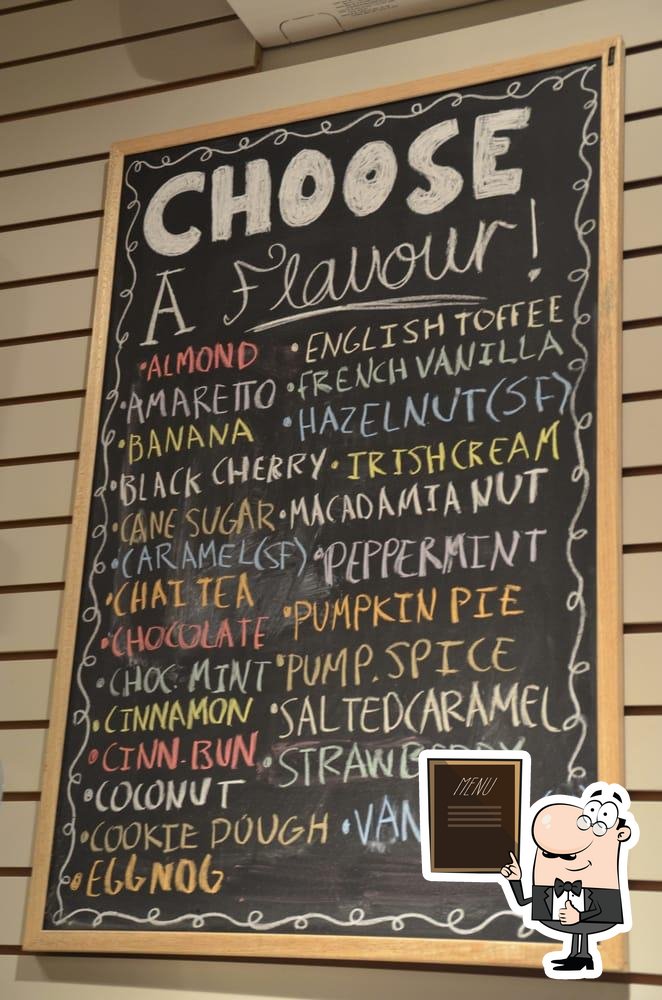 CHOOSE
A Flavour!
• ALMOND
• AMARETTO
• BANANA
• BLACK CHERRY
• CANE SUGAR
• CARAMEL(SF)
• CHAI TEA
• CHOCOLATE
• CHOC. MINT
• CINNAMON
• CINN. BUN
• COCONUT
• COOKIE DOUGH
• EGGNOG
• ENGLISH TOFFEE
• FRENCH VANILLA
• HAZELNUT(SF)
• IRISH CREAM
• MACADAMIA NUT
• PEPPERMINT
• PUMPKIN PIE
• PUMP. SPICE
• SALTED CARAMEL
MENU